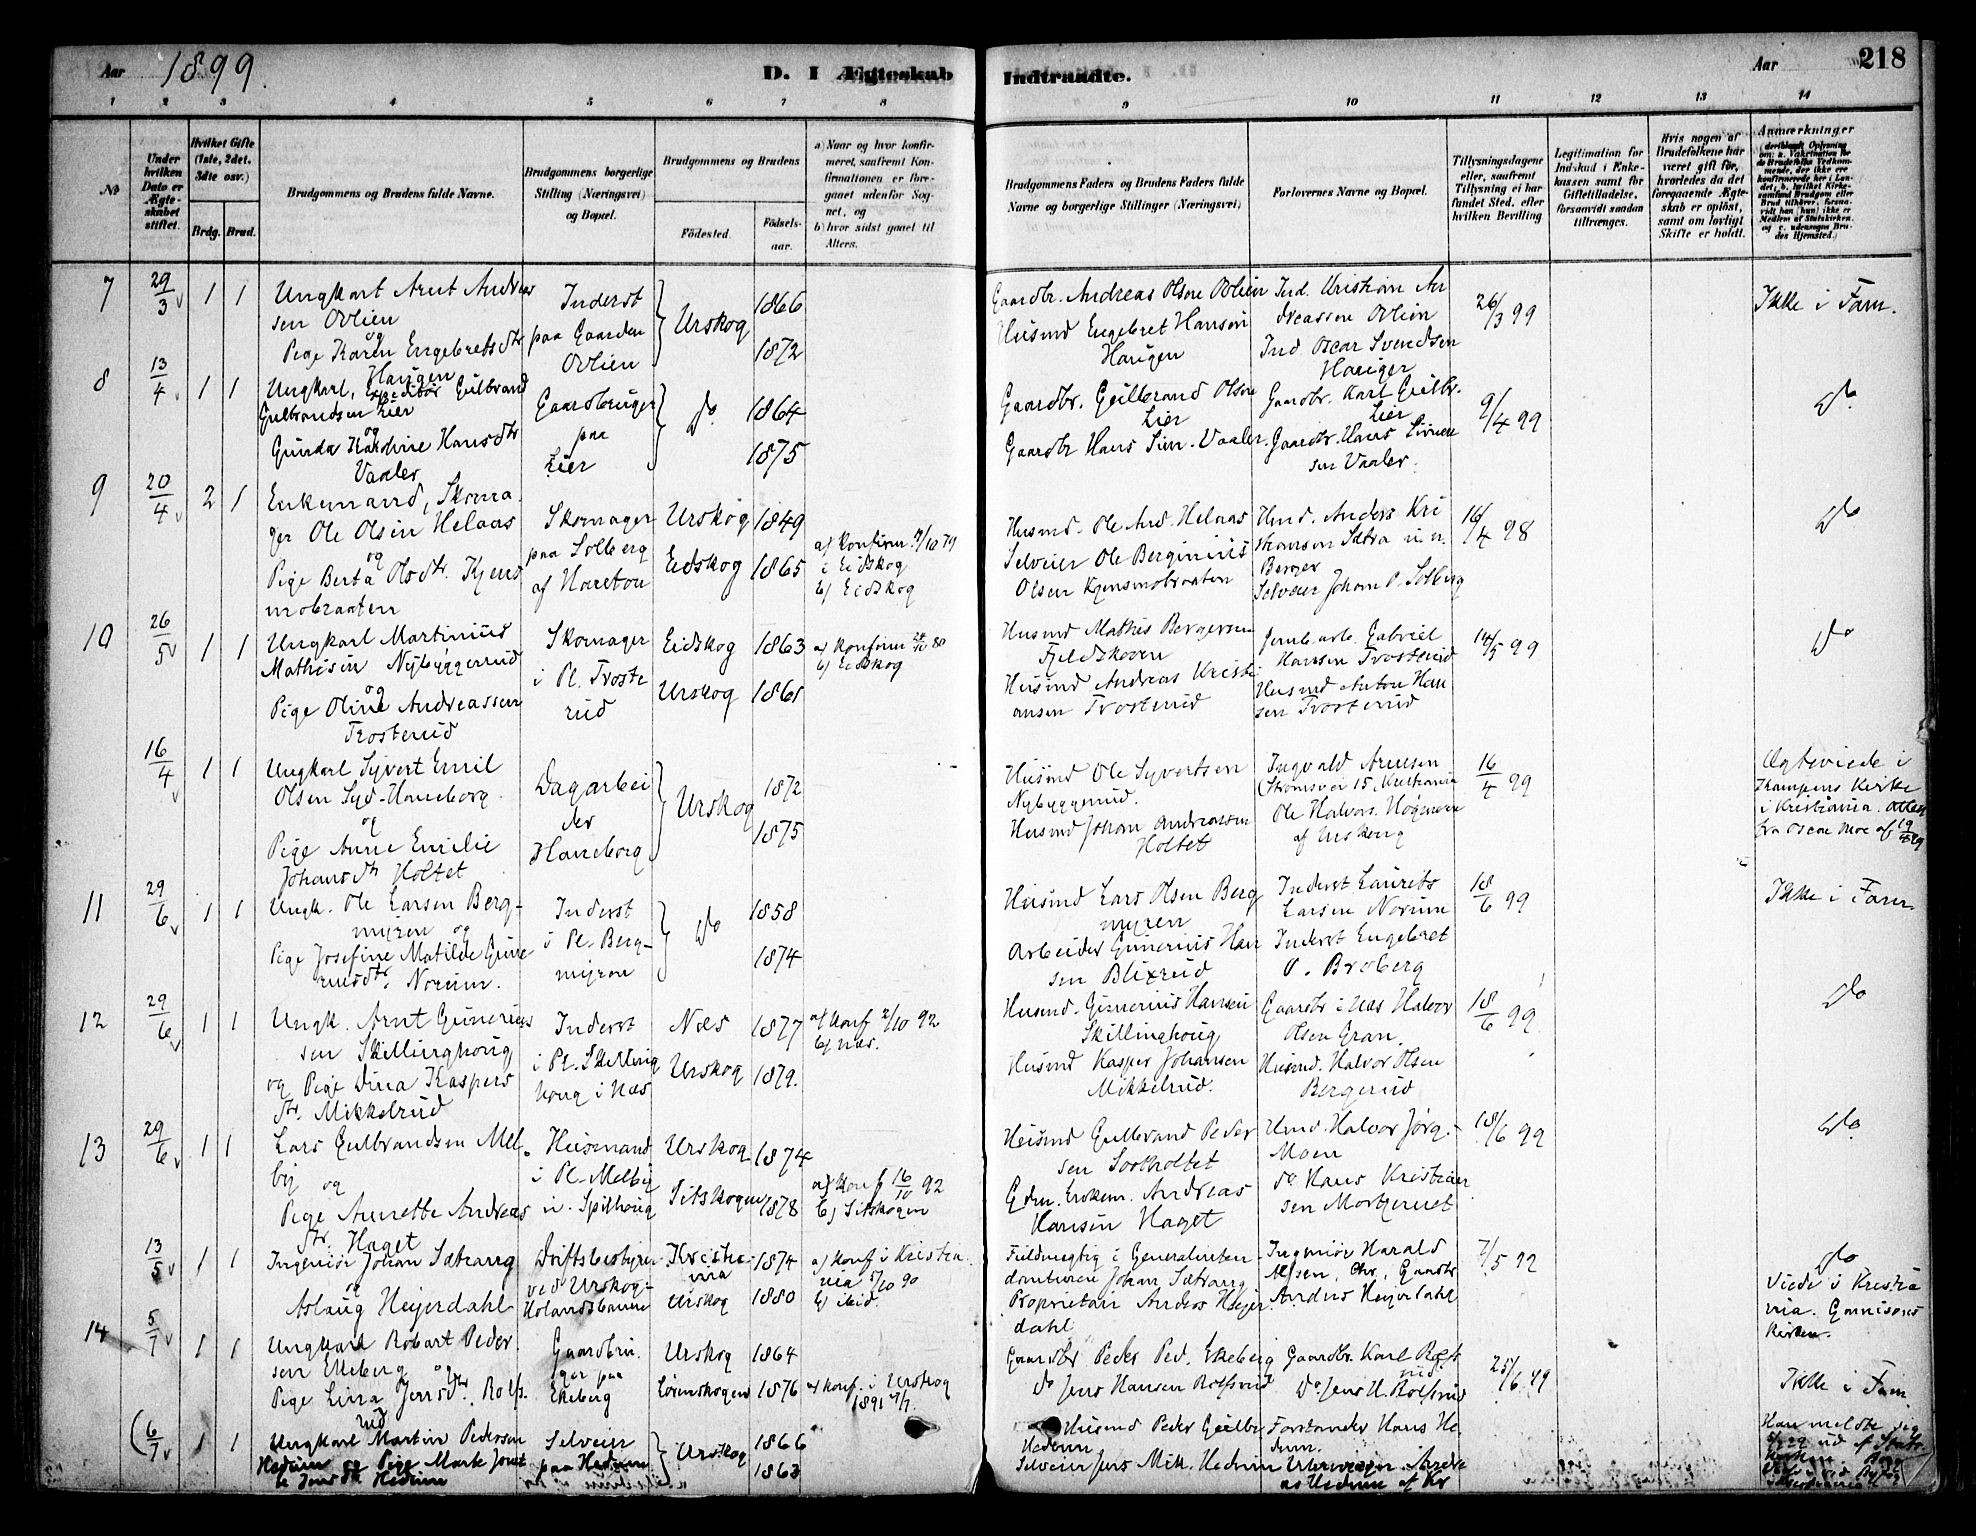 Aar 1899. D. I Ægteskab Indtraadte. Aar 218
1 2 3 4 5 6 7 8 9 10 11 12 13 14
№
Under hvilken Dato er Ægteskabet stiftet.
Hvilket Gifte (1ste, 2det, 3die osv.)
Brdg. Brud.
Brudgommens og Brudens fulde Navne.
Brudgommens borgerlige Stilling (Næringsvei) og Bopæl.
Brudgommens og Brudens
Fødested. Fødselsaar.
a) Naar og hvor konfirmeret, saafremt Konfirmationen er foregaaet udenfor Sognet, og
b) hvor sidst gaaet til Alters.
Brudgommens Faders og Brudens Faders fulde Navne og borgerlige Stillinger (Næringsvei)
Forlovernes Navne og Bopæl.
Tillysningsdagene eller, saafremt Tillysning ei har fundet Sted, efter hvilken Bevilling
Legitimation for Indskud i Enkekassen samt for Giftetilladelse, forsaavidt saadan tiltrænges.
Hvis nogen af Brudefolkene har været gift før, hvorledes da det foregaaende Ægteskab er opløst, samt om lovligt Skifte er holdt.
Anmærkninger
7 29/3 1 1
Ungkarl Arnt Andreas
sen Ovlien
og
Pige Karen Engebretsdtr
Haugen
Inderst
paa Gaarden
Ovlien
Urskog
1866
1872
Gaardbr. Andreas Olsen Ovlien
Husmd Engebret Hansen
Haugen
Ind. Kristian An
dreassen Ovlien
Ind Oscar Svendsen
Haugen
26/3 99
Ikke i Fam.
8 13/4 1 1
Ungkarl, Gulbrand
Gulbrandsen Lier
og
Gunda Karoline Hansdtr
Vaaler
Gaardbruger
paa
Lier
do
1864
1875
Gaardbr. Gulbrand Olsen
Lier
Gaardbr Hans Sim. Vaaler
Gaardbr. Karl Gulbr.
Lier
Gaardbr. Hans Simen
sen Vaaler.
9/4 99
do
9 20/4 2 1
Enkemand, Skoma
ger Ole Olsen Helaas
og
Pige Berta Olsdtr. Kjens
mobraaten
Skomager
paa Solberg
af Haneton
Urskog 1849
Eidskog 1865
a) konfirm. /10 79
i Eidskog
b) Eidskog
Husmd. Ole And. Helaas
Selveier Ole Berginius
Olsen Kjensmobraaten
Hmd. Anders Kri
stiansen Sætra u. n.
Berger
Selveier Johan P. Solberg
16/4 98
do
10 26/5 1 1
Ungkarl Martinius
Mathisen Nybyggerud
og
Pige Oline Andreassen
Trosterud
Skomager
i Pl. Troste
rud
Eidskog 1863
Urskog 1865
b) Eidskog
Husmd Mathis Bergersen
Fjeldskoven
Husmd Andreas Kristi
ansen Trosterud
Jernb. arb. Gabriel
Hansen Trosterud
Husmd Anton Han
sen Trosterud
14/5 99
do
16/4 1 1
Ungkarl Syvert Emil
Olsen Syd-Haneborg
og
Pige Anne Emilie
Johansdtr Holtet
Dagarbei
der
Haneborg
Urskog
1872
1875
Husmd Ole Syvertsen
Nybyggerud.
Husmd Johan Andreassen
Holtet
Ingvald Arnesen
(Strømsvei 15, Kristiania
Ole Halvors. Høgmoen
af Urskog
16/4 99
Ægteviede i
Kampens Kirke
i Kristiania. Attest
fra Oscar Moe af 19/4 99
11 29/6 1 1
Ungk. Ole Larsen Berg-
myren og
Pige Josefine Matilde Gune
riusdtr. Norum.
Inderst
i Pl. Berg-
myren
do
1858
1874
Husmd Lars Olsen Berg
myren
Arbeider Gunerius Han
sen Blixrud
Inderst Laurits
Larsen Norum
Inderst Engebret
O. Broberg
18/6 99
Ikke i Fam.
12 29/6 1 1
Ungk. Arnt Guneriu
sen Skillinghoug
og Pige Dina Kaspers
dtr. Mikkelrud
Inderst
i Pl. Skilling
houg i Næs
Næs 1877
Urskog 1879.
a) Konf 2/10 92
b) Næs.
Husmd. Gunerius Hansen
Skillinghoug
Husmd Kasper Johansen
Mikkelrud.
Gaardbr i Næs Halvor
Olsen Gran.
Husmd. Halvor Olsen
Bergerud
18/6 99
do
13 29/6 1 1
Lars Gulbrandsen Mel-
by og
Pige Annette Andreas
dtr. Haget
Husmand
i Pl. Melby
u. Spilhoug
Urskog 1874
Sitskogen 1878
a) Konf 16/10 92
b) Sitskogen
Husmd Gulbrand Peder
sen Sootholtet
Andreas
Hansen Haget
Hmd. Halvor Jørg.
Moen
do Hans Kristian
sen Morterud
18/6 99
do
13/5 1 1
Ingeniør Johan Sætrang
og
Aslaug Heyerdahl
Driftsbestyrer
ved Urskog-
Hølandsbanen
Kristia
nia 1874
Urskog 1880
a) Konf i Kristia
nia 5/10 90
b) ibid.
Fuldmægtig i Generalinten-
danturen Johan Sætrang
Proprietær Anders Heyer
dahl
Ingeniør Harald
Alfsen, Chr., Gaardbr
Anders Heyerdahl
7/5 92
do
Viede i Kristia
nia. Garnisons
kirken.
14 5/7 1 1
Ungkarl Robart Peder
sen Ekeberg og
Pige Lina Jensdtr. Rolfs
rud
Gaardbru
ger paa
Ekeberg
Urskog 1864
Lørenskogen 1876
a) Konf. i Urskog
1891
Gaardbr Peder Ped. Ekeberg
do Jens Hansen Rolfsrud
Gaardbr. Karl Rolfs
rud
do Jens H. Rolfsrud
25/6 99
Ikke i Fam
(6/7 1 1
Ungkarl Martin Pedersen
Hedum og Pige Marte Jens
Hedum
Selveier
paa Hedum
Urskog
1866
1863
Husmd Peder Gulbr.
Hedum
Selveier Jens Mik. Hedum
Forstander Hans He
dum.
Han meldte sig
ud af Stats
kirken